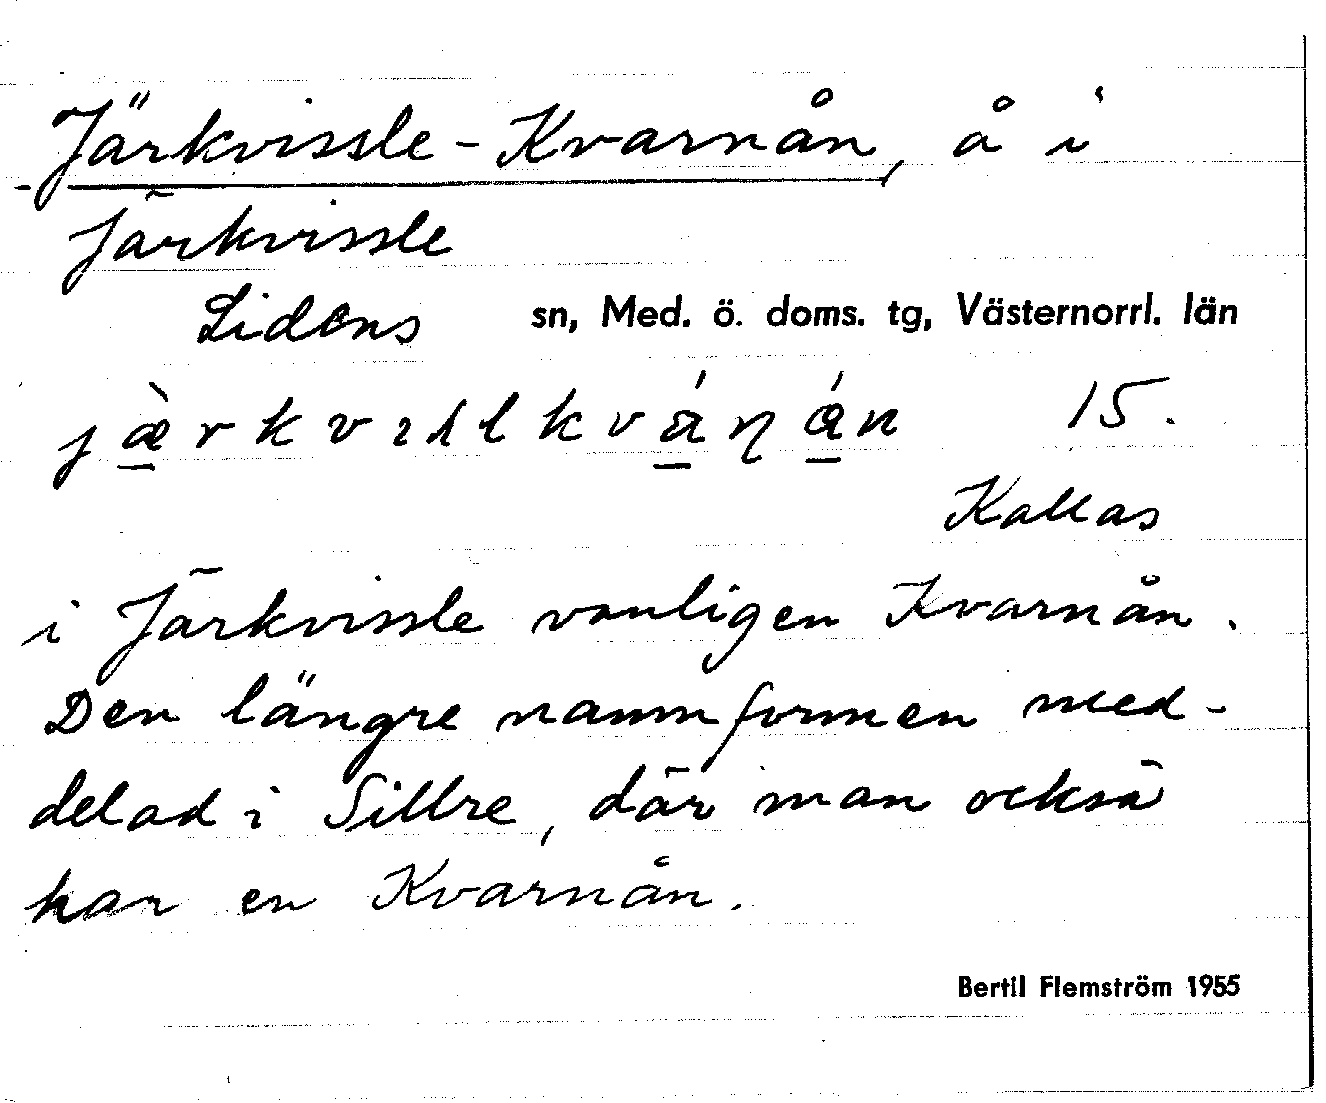 Järkvissle-Kvarnån, å i
Järkvissle
Lidens sn, Med. ö. doms. tg, Västernorrl. län
15.
Kallas
i Järkvissle vanligen Kvarnån.
Den längre namnformen med-
delad i Sillre, där man också
har en Kvarnån.
Bertil Flemström 1955